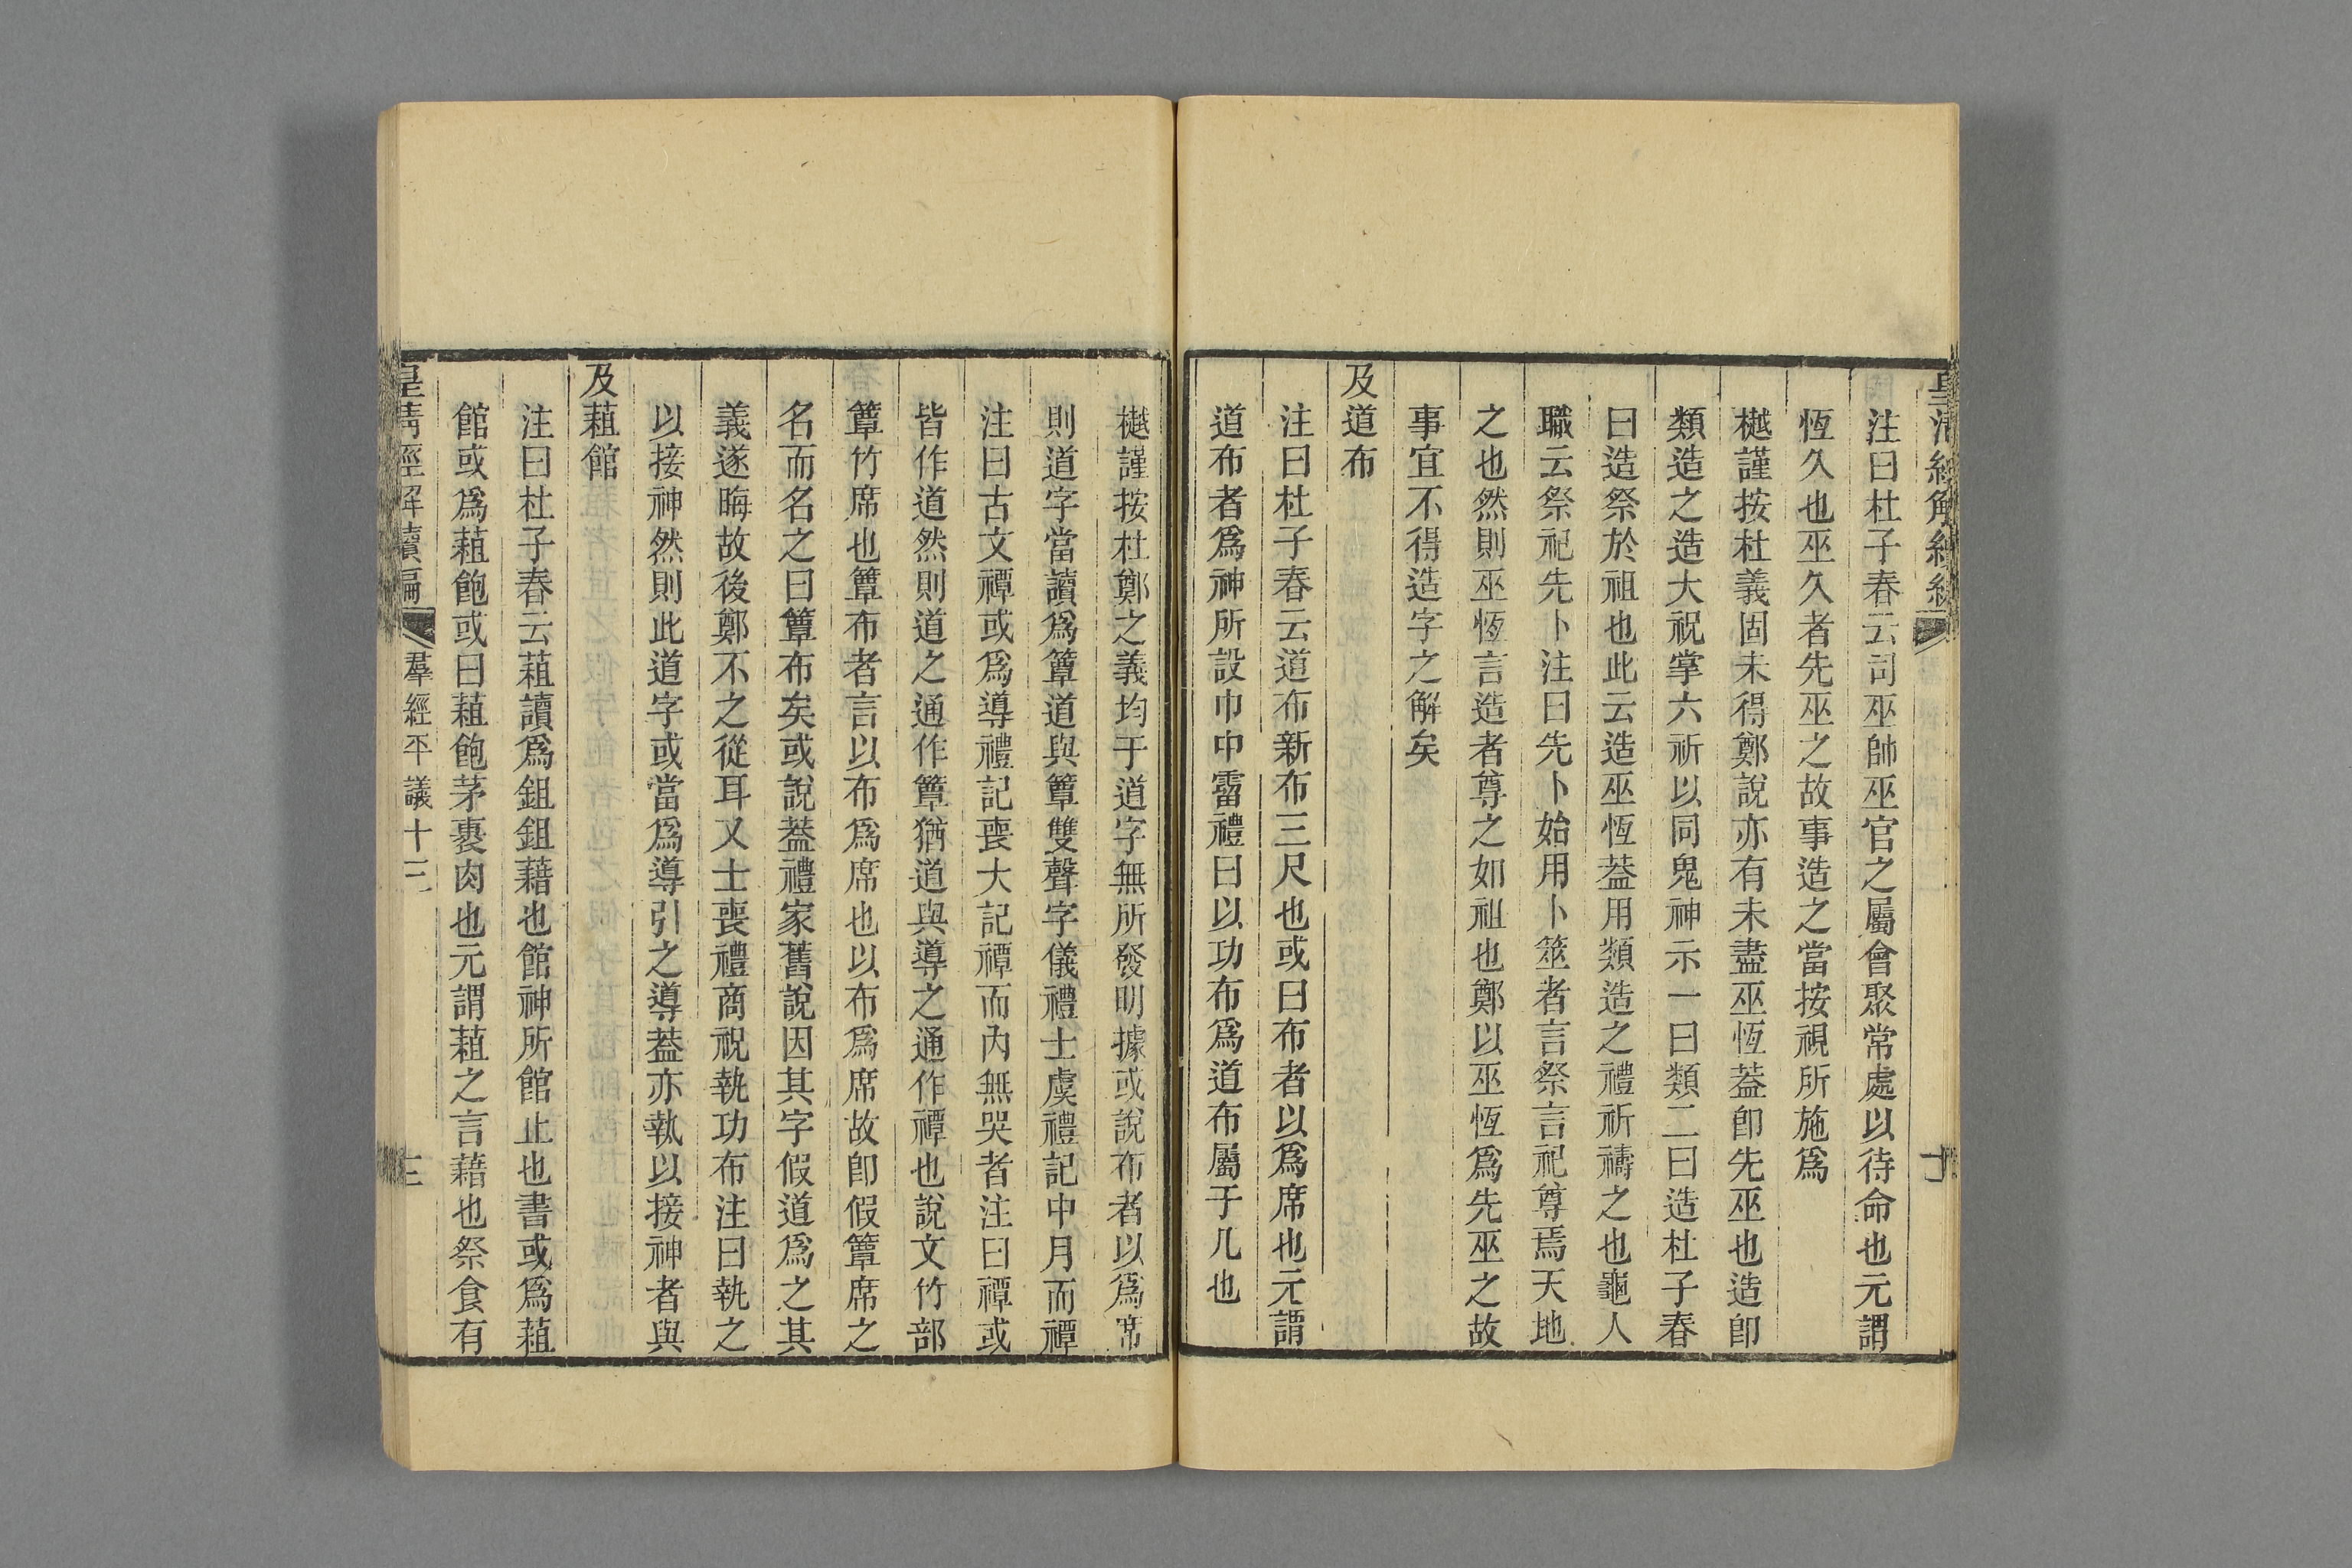 注曰杜子春云司巫帥巫官之屬會聚常處以待命也元謂
恆久也巫久者先巫之故事造之當按視所施爲
樾謹按杜義固未得鄭說亦有未盡巫恆葢卽先巫也造卽
類造之造大祝掌六祈以同鬼神示一曰類二曰造杜子春
曰造祭於祖也此云造巫恆葢用類造之禮祈禱之也龜人
職云祭祀先卜注曰先卜始用卜筮者言祭言祀尊焉天地
之也然則巫恆言造者尊之如祖也鄭以巫恆爲先巫之故
事宜不得造字之解矣
及道布
注曰杜子春云道布新布三尺也或曰布者以爲席也元謂
道布者爲神所設巾中霤禮曰以功布爲道布屬于几也
樾謹按杜鄭之義均于道字無所發明據或說布者以爲席
則道字當讀爲簟道與簟雙聲字儀禮士虞禮記中月而禫
注曰古文禫或爲導禮記喪大記禫而內無哭者注曰禫或
皆作道然則道之通作簟猶道與導之通作禫也說文竹部
簟竹席也簟布者言以布爲席也以布爲席故卽假簟席之
名而名之曰簟布矣或說葢禮家舊說因其字假道爲之其
義遂晦故後鄭不之從耳又士喪禮商祝執功布注曰執之
以接神然則此道字或當爲導引之導葢亦執以接神者與
及蒩館
注曰杜子春云蒩讀爲鉏鉏藉也館神所館止也書或爲蒩
館或爲蒩飽或曰蒩飽茅裹肉也元謂蒩之言藉也祭食有
皇清經解續編
羣經平議十三